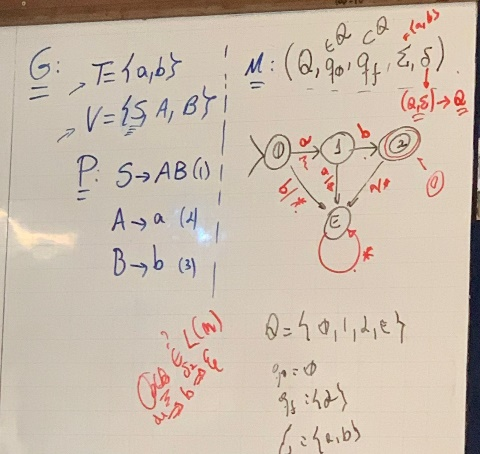 G:
T={a,b}
V={S, A, B}
P: S→AB (1)
A→a (2)
B→b (3)
M: (Q, q0, qf, Σ, δ)
∈Q ⊂Q ={a,b}
(Q,Σ)→Q
0 a 1 b 2
b/* a/* *
E
*
? ∈ L(M)
Q={0,1,2,E}
q0=0
qf={2}
Σ={a,b}